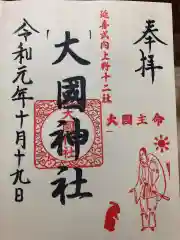 奉拝
延喜式内上野十二社
大國主命
大國神社
令和元年十月十九日